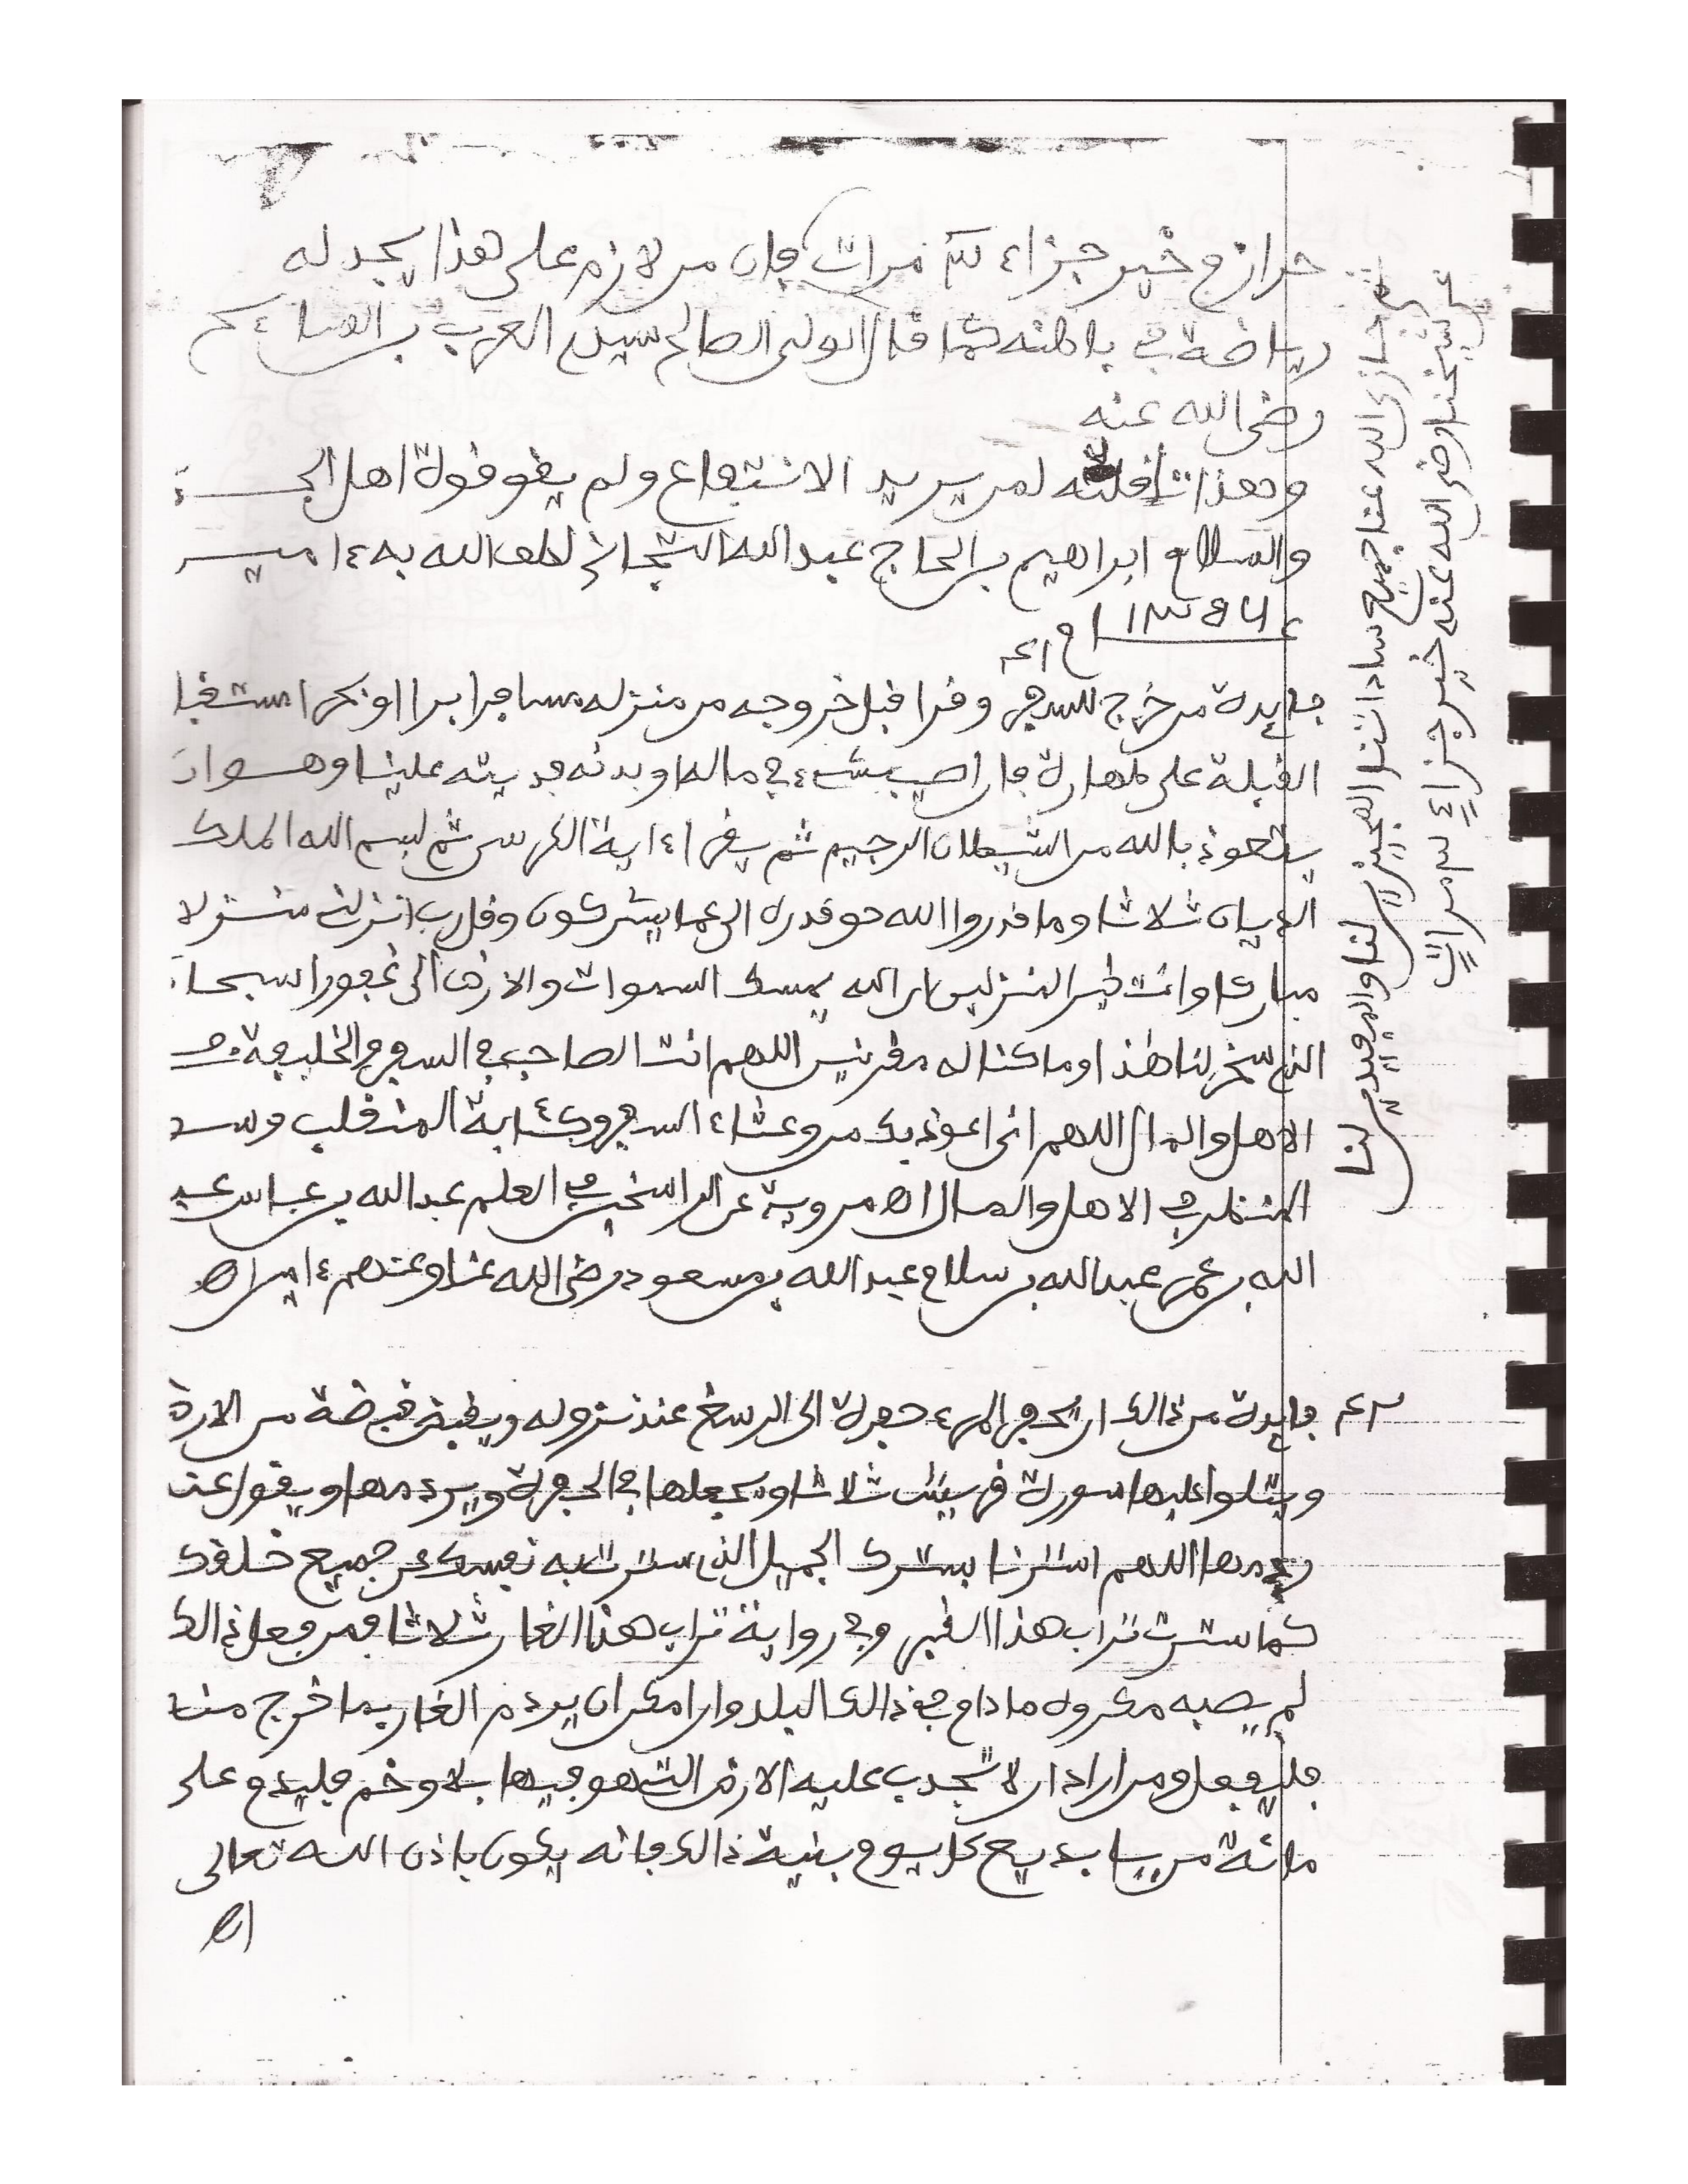 حرازم خير جزاء ٣ مرات فإن من لازم على هذا يجد له
رياضة في باطنه كما قال الولي الصالح سيد العرب بن السائح
رضي الله عنه
وهذا قلته لمن يريد الانتفاع ولم يقو قوة اهل الجد
والسلام ابراهيم بن الحاج عبد الله التجاني لطف الله به ءامين
١٣٥٧
فايدة من خرج للسفر وقرا قبل خروجه من منزله مسافرا برا او بحرا مستقبل
القبلة على طهارة فان اصيب بشيء في ماله او بدنه فديته علينا وهو ان
يتعوذ بالله من الشيطان الرجيم ثم يقرا ءاية الكرسي ثم بسم الله الملك
الديان ثلاثا وما قدروا الله حق قدره الى عما يشركون وقل رب انزلني منزلا
مباركا وانت خير المنزلين ان الله يمسك السموات والارض الى غفورا سبحان
الذي سخر لنا هذا وما كنا له مقرنين اللهم انت الصاحب في السفر والخليفة في
الاهل والمال اللهم اني اعوذ بك من وعثاء السفر وكئابة المنقلب وسوء
المنظر في الاهل والمال اه مروية عن الراسخين في العلم عبد الله بن عباس عبد
الله بن عمر عبد الله بن سلام عبد الله بن مسعود رضي الله عنا وعنهم ءامين اه
فايدة من ذالك ان يحفر المرء حفرة الى الرسغ عند نزوله ويقبض قبضة من الارض
ويتلوا عليها سورة قريش ثلاثا ويجعلها في الحفرة ويردمها ويقول عند
ردمها اللهم استرنا بسترك الجميل الذي سترت به نفسك عن جميع خلقك
كما سترت تراب هذا القبر وفي رواية تراب هذا الغار ثلاثا فمن فعل ذالك
لم يصبه مكروه ما دام في ذالك البلد وان امكن ان يردم الغار بما خرج منه
فليفعل ومن اراد ان لا تجدب عليه الارض التي هو فيها بلا وخم فليدم على
مائة من يا بديع كل يوم بنية ذالك فانه يكون باذن الله تعالى
اه
ثم جازى الله عنا جميع ساداتنا المجيزين لنا والمفيدين لنا
عن شيخنا رضي الله عنه خير جزاء ٣ مرات